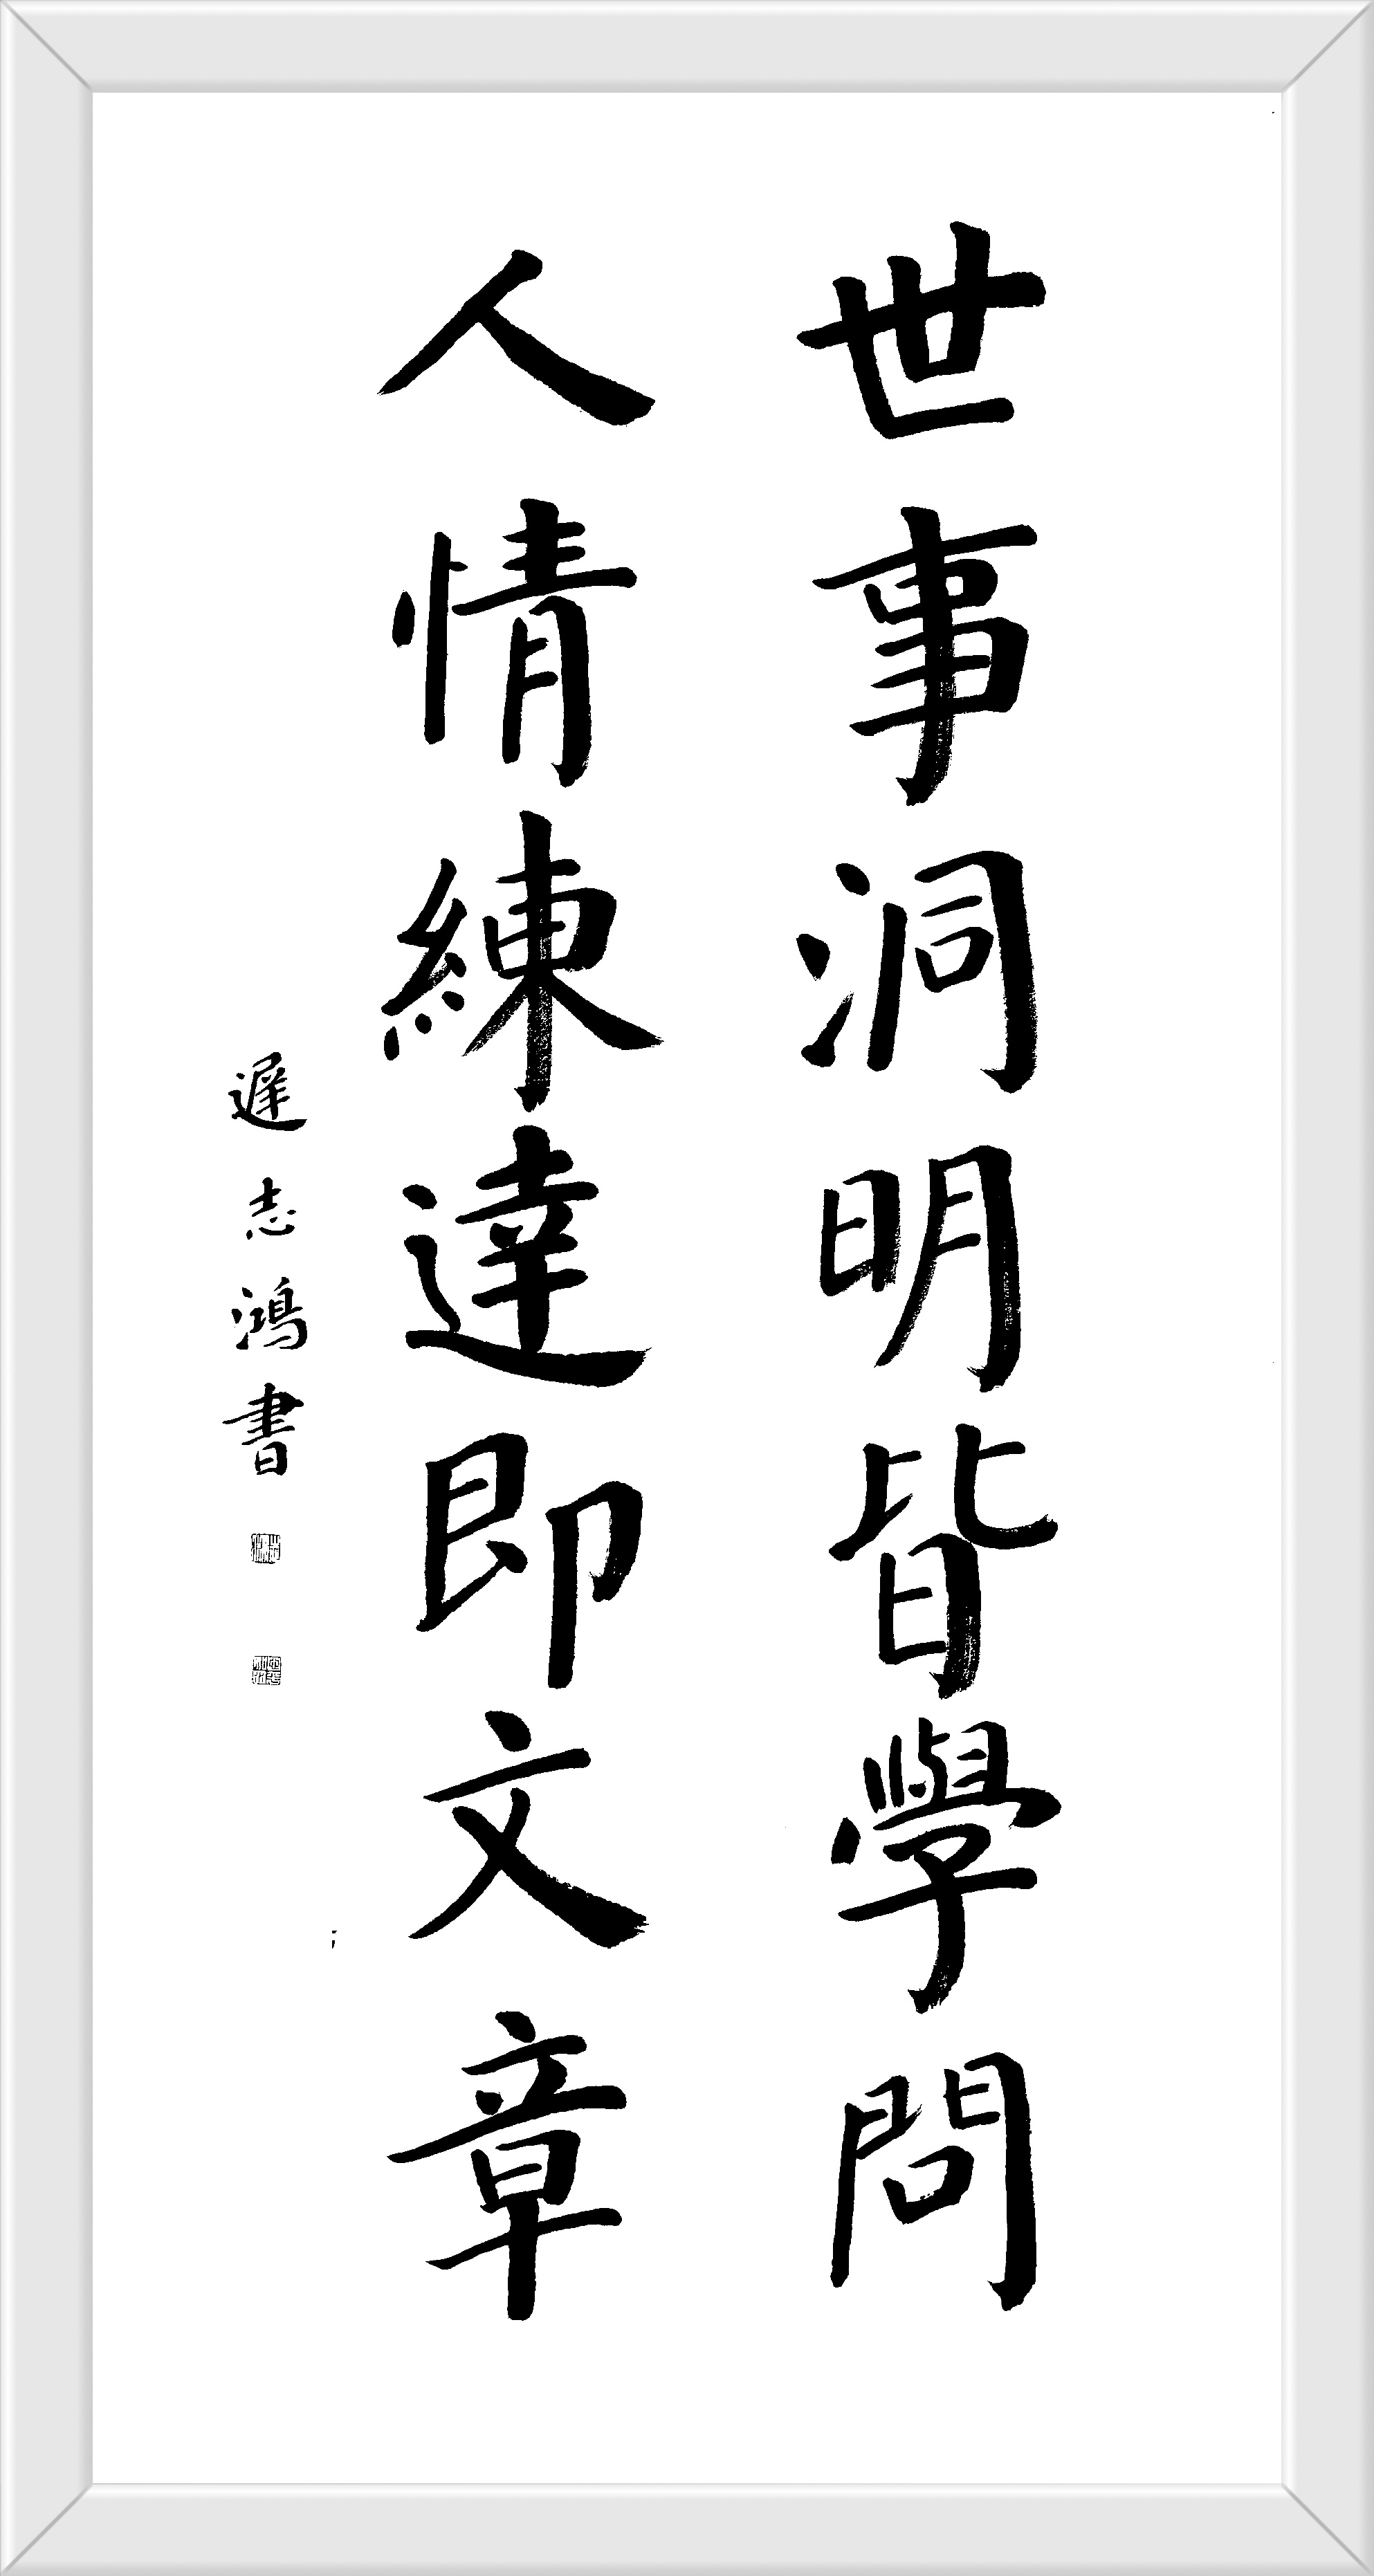 世事洞明皆學問
人情練達即文章
遲志鴻書